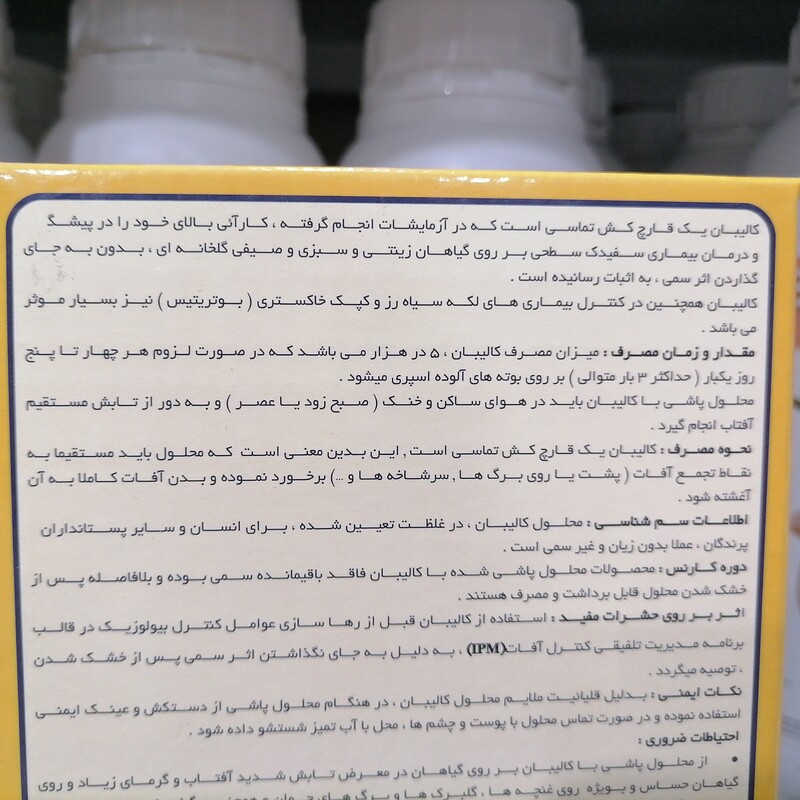 کالیبان یک قارچ کش تماسی است که در آزمایشات انجام گرفته ، کارآئی بالای خود را در پیشگ
و درمان بیماری سفیدک سطحی بر روی گیاهان زینتی و سبزی و صیفی گلخانه ای ، بدون به جای
گذاردن اثر سمی ، به اثبات رسانیده است .
کالیبان همچنین در کنترل بیماری های لکه سیاه رز و کپک خاکستری ( بوتریتیس ) نیز بسیار موثر
می باشد .
مقدار و زمان مصرف : میزان مصرف کالیبان ، ۵ در هزار می باشد که در صورت لزوم هر چهار تا پنج
روز یکبار ( حداکثر ۳ بار متوالی ) بر روی بوته های آلوده اسپری میشود .
محلول پاشی با کالیبان باید در هوای ساکن و خنک ( صبح زود یا عصر ) و به دور از تابش مستقیم
آفتاب انجام گیرد .
نحوه مصرف : کالیبان یک قارچ کش تماسی است , این بدین معنی است که محلول باید مستقیما به
نقاط تجمع آفات ( پشت یا روی برگ ها , سرشاخه ها و ...) برخورد نموده و بدن آفات کاملا به آن
آغشته شود .
اطلاعات سم شناسی : محلول کالیبان ، در غلظت تعیین شده ، برای انسان و سایر پستانداران
پرندگان ، عملا بدون زیان و غیر سمی است .
دوره کارنس : محصولات محلول پاشی شده با کالیبان فاقد باقیمانده سمی بوده و بلافاصله پس از
خشک شدن محلول قابل برداشت و مصرف هستند .
اثر بر روی حشرات مفید : استفاده از کالیبان قبل از رها سازی عوامل کنترل بیولوزیک در قالب
برنامه مدیریت تلفیقی کنترل آفات(IPM) ، به دلیل به جای نگذاشتن اثر سمی پس از خشک شدن
، توصیه میگردد .
نکات ایمنی : بدلیل قلیائیت ملایم محلول کالیبان ، در هنگام محلول پاشی از دستکش و عینک ایمنی
استفاده نموده و در صورت تماس محلول با پوست و چشم ها ، محل با آب تمیز شستشو داده شود .
احتیاطات ضروری :
• از محلول پاشی با کالیبان بر روی گیاهان در معرض تابش شدید آفتاب و گرمای زیاد و روی
گیاهان حساس و بویژه روی غنچه ها ، گلبرگ ها و برگ های